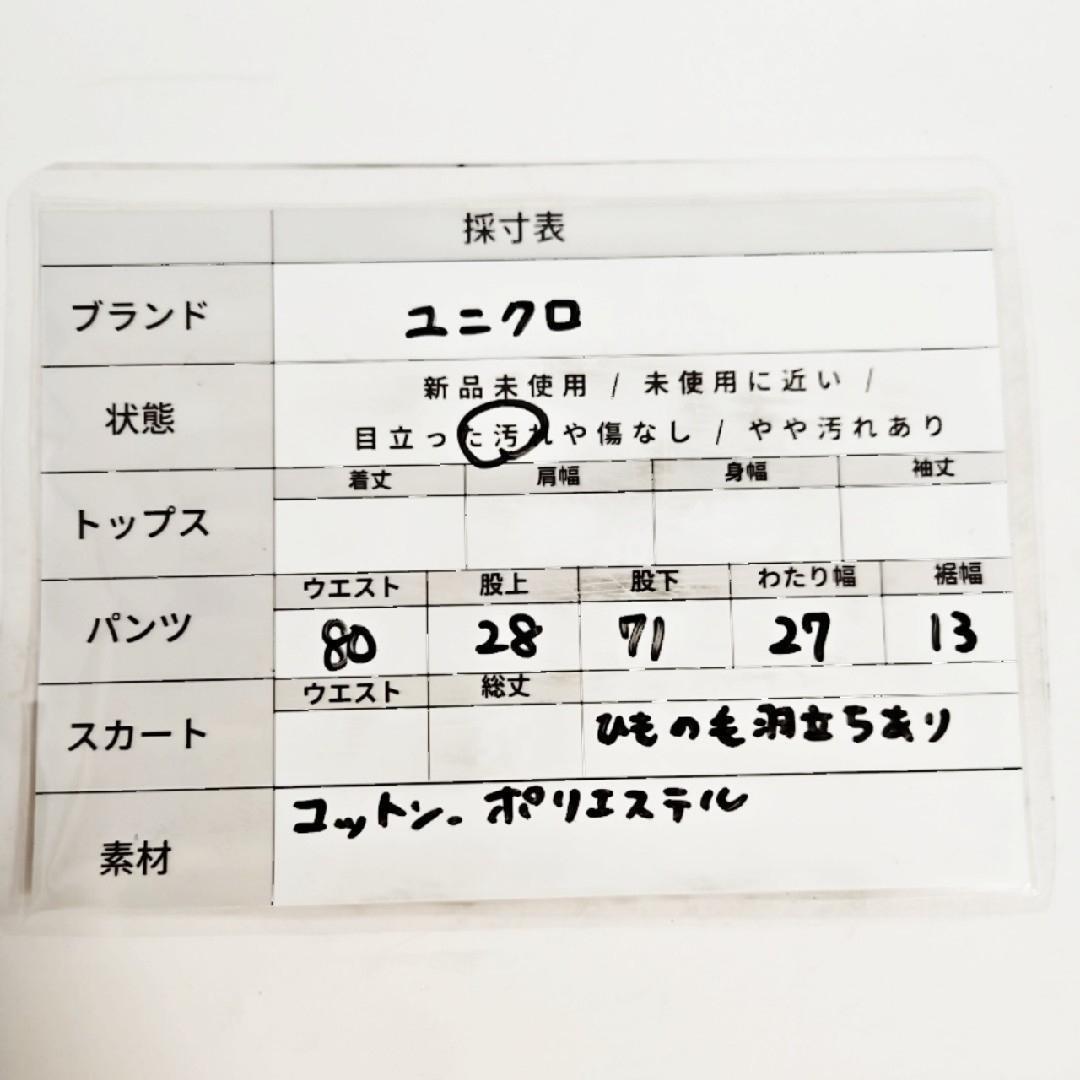 採寸表
ブランド ユニクロ
状態 新品未使用 / 未使用に近い /
目立った汚れや傷なし / やや汚れあり
着丈 肩幅 身幅 袖丈
トップス
ウエスト 股上 股下 わたり幅 裾幅
パンツ 80 28 71 27 13
ウエスト 総丈
スカート ひもの毛羽立ちあり
素材 コットン. ポリエステル